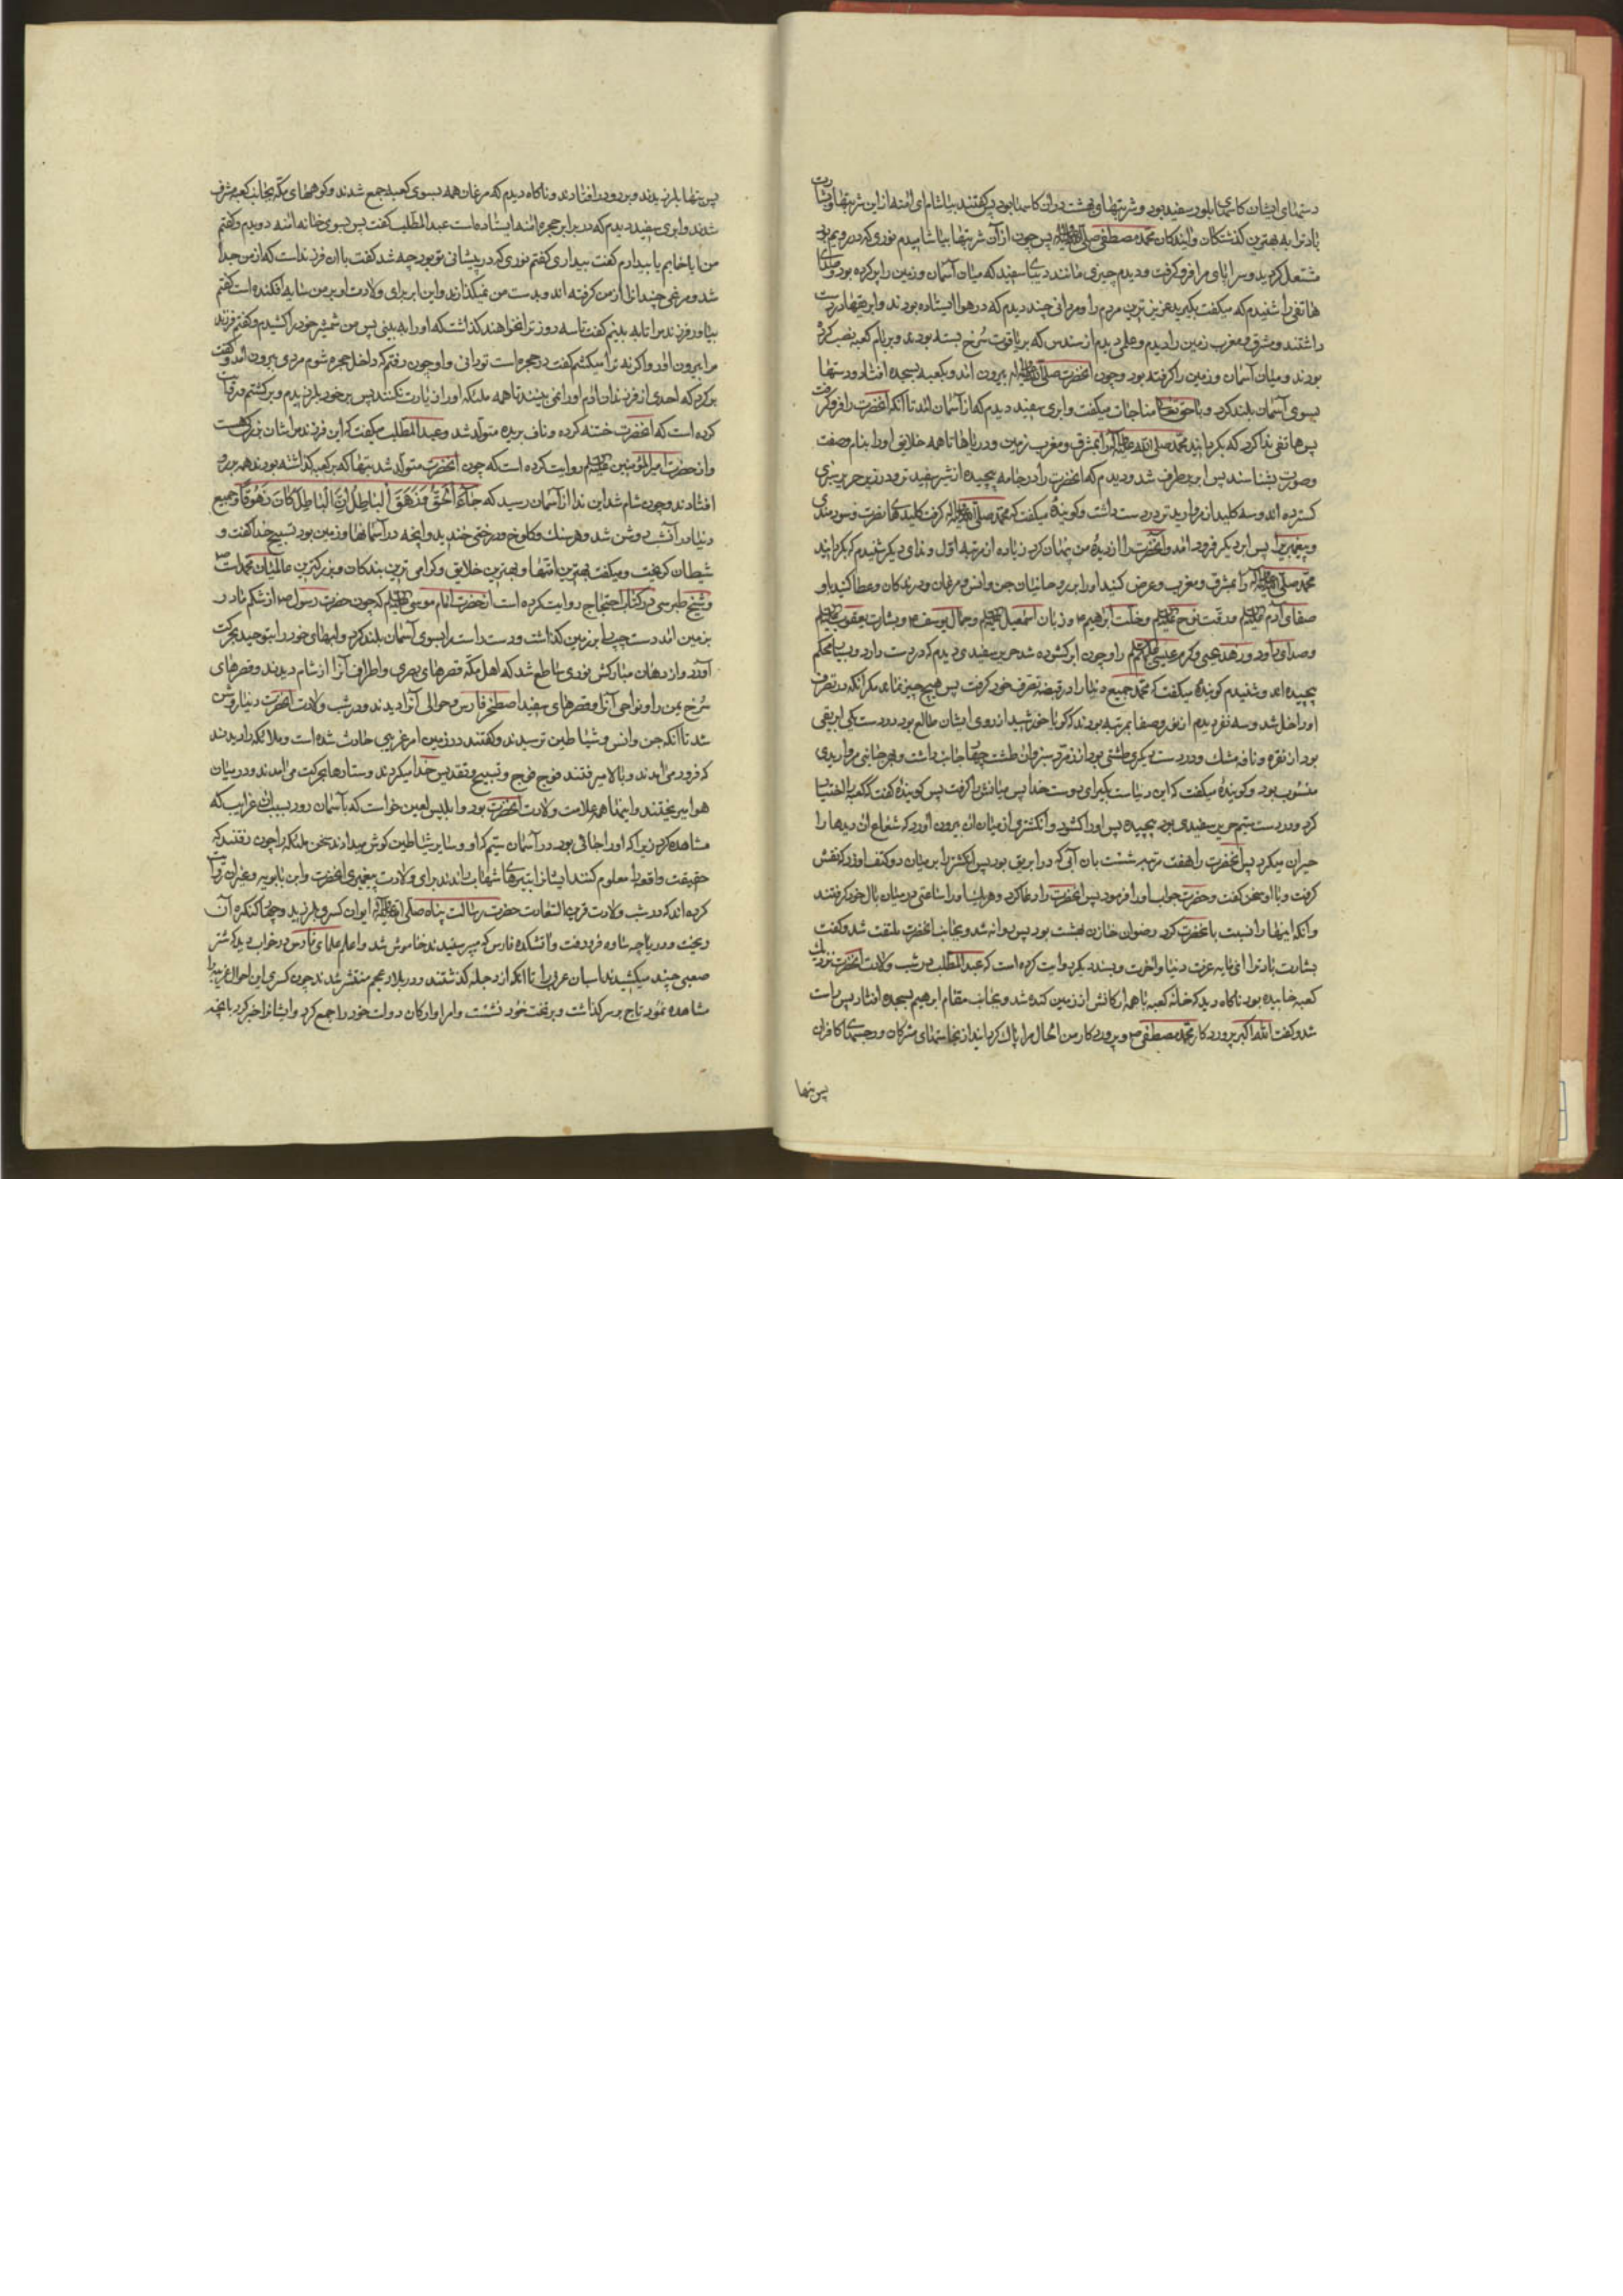 دستهای ایشان کاسهای بلور سفید بود و شربتهای بهشت در آن کاسها بود پس گفتند بیاشام ای آمنه از این شربتها و بشارت
باد ترا به بهترین گذشتگان و آیندگان محمد مصطفی صلی الله علیه و آله پس چون از آن شربتها بیاشامیدم نوری که در رویم بود
مشتعل گردید و سراپای مرا فرو گرفت و دیدم چیزی مانند دیبای سفید که میان آسمان و زمین را پر کرده بود و صدای
هاتفی را شنیدم که میگفت بگیرید عزیزترین مردم را و مردانی چند دیدم که در هوا ایستاده بودند و ابریقها در دست
داشتند و مشرق و مغرب زمین را دیدم و علمی دیدم از سندس که بر یاقوت سرخ بسته بودند و بر بام کعبه نصب کرده
بودند و میان آسمان و زمین را گرفته بود و چون آنحضرت صلی الله علیه و آله بیرون آمد رو بکعبه بسجده افتاد و دستها
بسوی آسمان بلند کرد و با حق تعالی مناجات میگفت و ابری سفید دیدم که از آسمان آمد تا آنکه آنحضرت را فرو گرفت
پس هاتفی ندا کرد که بگردانید محمد صلی الله علیه و آله را بمشرق و مغرب زمین و دریاها تا همه خلایق او را بنام و صفت
و صورت بشناسند پس ابر برطرف شد و دیدم که آنحضرت را در جامه پیچیده از شیر سفیدتر و در زیرش حریر سبزی
گسترده اند و سه کلید از مروارید تر در دست داشت و گوینده میگفت که محمد صلی الله علیه و آله گرفت کلیدهای نصرت و سودمندی
و پیغمبری را پس ابر دیگر فرود آمد و آنحضرت را از دیدهٔ من پنهان کرد زیاده از مرتبه اول و ندای دیگر شنیدم که بگردانید
محمد صلی الله علیه و آله را بمشرق و مغرب و عرض کنید او را بر روحانیان جن و انس و مرغان و درندگان و عطا کنید باو
صفای آدم علیه السلام و رقت نوح علیه السلام و خلت ابراهیم و زبان اسمعیل علیه السلام و جمال یوسف و بشارت یعقوب علیه السلام
و صدای داود و زهد یحیی و کرم عیسی علیه السلام را و چون ابر گشوده شد حریر سفیدی دیدم که در دست دارد و بسیار محکم
پیچیده اند و شنیدم گویندهٔ میگفت که محمد جمیع دنیا را در قبضه تصرف خود گرفت پس هیچ چیز نماند مگر آنکه در تصرف
او داخل شد و سه نفر دیدم از نور و صفا بمرتبه بودند که گویا خورشید از روی ایشان طالع بود در دست یکی ابریقی
بود از نقره و نافه مشک و در دست دیگری طشتی بود از زمرد سبز و آن طشت چهار جانب داشت و بهر جانبی مرواریدی
منصوب بود و گویندهٔ میگفت که این دنیاست بگیر ای دوست خدا پس میانش را گرفت پس گویندهٔ گفت که کعبه را اختیار
کرد و در دست سیم حریر سفیدی بود پیچیده پس او را گشود و انگشتری از میان آن بیرون آورد که شعاع آن دیدها را
حیران میکرد پس آنحضرت را هفت مرتبه شست بان آبی که در ابریق بود پس انگشتر را بر میان دو کتف او زد که نقش
گرفت و با او سخن گفت و حضرت جواب او را فرمود پس آنحضرت را دعا کرد و هر یک او را ساعتی در میان بال خود گرفتند
و آنکه اینها را نسبت بانحضرت کرد رضوان خازن بهشت بود پس روانه شد و بجانب آنحضرت ملتفت شد و گفت
بشارت باد ترا ای مایه عزت دنیا و آخرت و بسند دیگر روایت کرده است که عبدالمطلب در شب ولادت آنحضرت نزدیک
کعبه خابیده بود ناگاه دید که خانه کعبه با همه ارکانش از زمین کنده شد و بجانب مقام ابراهیم بسجده افتاد پس راست
شد و گفت الله اکبر پروردگار محمد مصطفی و پروردگار من الحال مرا پاک گردانید از نجاستهای مشرکان و رجسهای کافران
پس بتها
پس بتها بلرزیدند و بر رو در افتادند و ناگاه دیدم که مرغان همه بسوی کعبه جمع شدند و کوههای مکه بجانب کعبه مشرف
شدند و ابری سفید دیدم که در برابر حجره آمنه ایستاده است عبدالمطلب گفت پس بسوی خانه آمنه دویدم و گفتم
من آیا خابم یا بیدارم گفت بیداری گفتم نوری که در پیشانی تو بود چه شد گفت با آن فرزند است که از من جدا
شد و مرغی چند او را از من گرفته اند و بدست من نمیگذارند و این ابر برای ولادت او بر من سایه افکنده است گفتم
بیاور فرزند مرا تا به بینم گفت تا سه روز ترا نخواهند گذاشت که او را به بینی پس من شمشیر خود را کشیدم و گفتم فرزند
مرا بیرون آور و اگر نه ترا میکشم گفت در حجره است تو دانی و او چون رفتم که داخل حجره شوم مردی بیرون آمد و گفت
برگرد که احدی از فرزندان آدم او را نمی بینند تا همه ملئکه او را زیارت نکنند پس بر خود بلرزیدم و برگشتم و روایت
کرده است که آنحضرت ختنه کرده و ناف بریده متولد شد و عبدالمطلب میگفت که این فرزند مرا شان بزرگ هست
و از حضرت امیرالمؤمنین علیه السلام روایت کرده است که چون آنحضرت متولد شد بتها که بر کعبه گذاشته بودند همه بر رو
افتادند و چون شام شد این ندا از آسمان رسید که جَاءَ الْحَقُّ وَزَهَقَ الْبَاطِلُ إِنَّ الْبَاطِلَ كَانَ زَهُوقًا و جمیع
دنیا در آنشب روشن شد و هر سنک و کلوخ و درختی خندید و آنچه در آسمانها و زمین بود تسبیح خدا گفت و
شیطان گریخت و میگفت بهترین امتها و بهترین خلایق و گرامی ترین بندگان و بزرگترین عالمیان محمد است
و شیخ طبرسی در کتاب احتجاج روایت کرده است از حضرت امام موسی علیه السلام که چون حضرت رسول از شکم مادر
بزمین آمد دست چپ را بر زمین گذاشت و دست راست را بسوی آسمان بلند کرد و لبهای خود را بتوحید بحرکت
آورد و از دهان مبارکش نوری ساطع شد که اهل مکه قصرهای بصری و اطراف آنرا از شام دیدند و قصرهای
سرخ یمن را و نواحی آنرا و قصرهای سفید اصطخر فارس و حوالی آنرا دیدند و در شب ولادت آنحضرت دنیا روشن
شد تا آنکه جن و انس و شیاطین ترسیدند و گفتند در زمین امر غریبی حادث شده است و ملائکه را دیدند
که فرود می آمدند و بالا میرفتند فوج فوج و تسبیح و تقدیس خدا میکردند و ستارها بحرکت می آمدند و در میان
هوا میریختند و اینها همه علامت ولادت آنحضرت بود و ابلیس لعین خواست که بآسمان رود بسبب آن غرایب که
مشاهده کرد زیرا که او را جائی بود در آسمان سیم که او و سایر شیاطین گوش میدادند سخن ملئکه را چون رفتند که
حقیقت واقعه را معلوم کنند ایشانرا بتیرهای شهاب راندند برای ولادت پیغمبری آنحضرت و ابن بابویه و غیر آن روایت
کرده اند که در شب ولادت قرین السعادت حضرت رسالت پناه صلی الله علیه و آله ایوان کسری بلرزید و چهارده کنگره آن
ریخت و دریاچه ساوه فرو رفت و آتشکده فارس که میپرستیدند خاموش شد و اعلم علمای فارس در خواب دید که شتر
صعبی چند میکشیدند اسبان عربی را تا آنکه از دجله گذشتند و در بلاد عجم منتشر شدند چون کسری این احوال غریبه را
مشاهده نمود تاج بر سر گذاشت و بر تخت خود نشست و امرا و ارکان دولت خود را جمع کرد و ایشانرا خبر کرد بآنچه